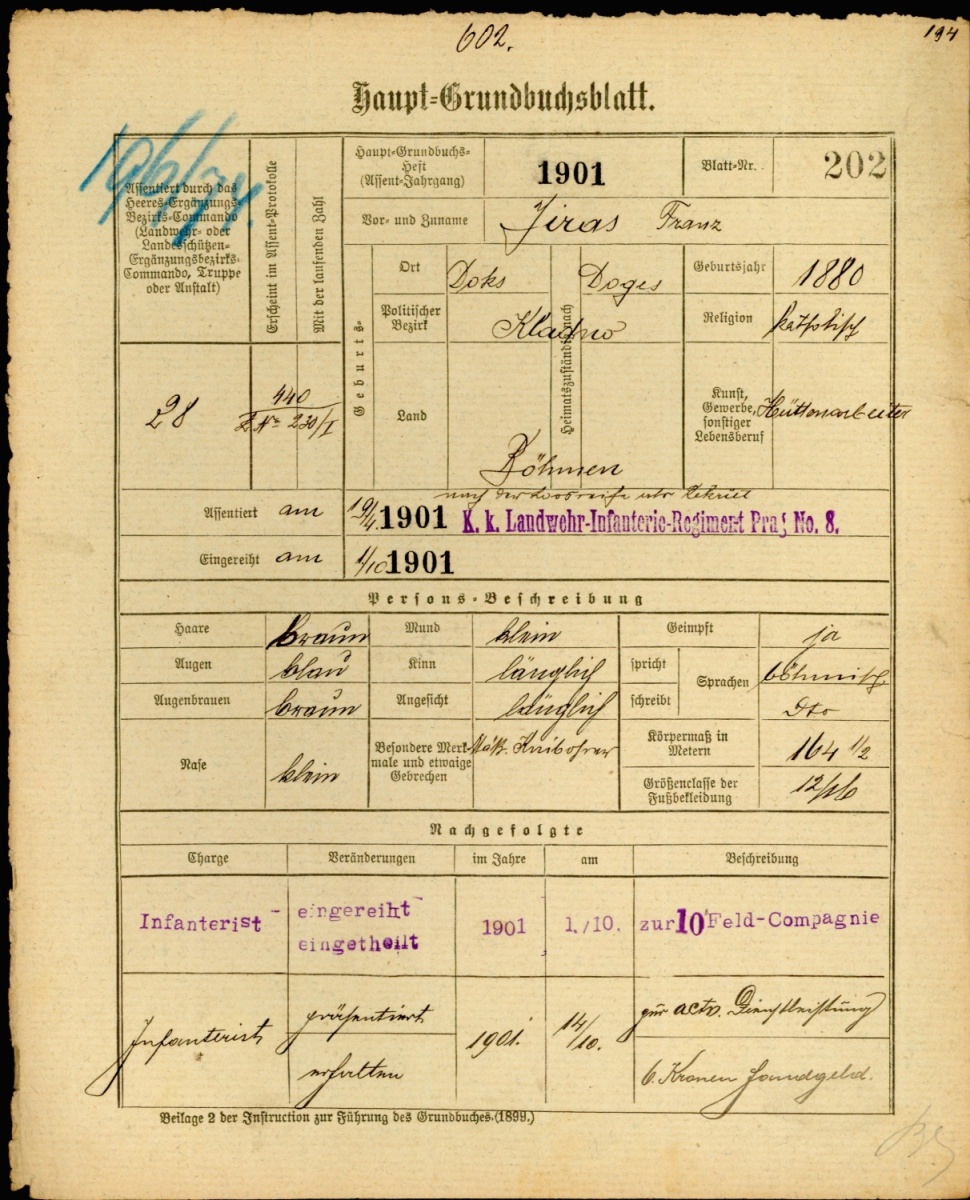 602.
194
Haupt-Grundbuchsblatt.
Assentiert durch das
Heeres-Ergänzungs-
Bezirks-Commando
(Landwehr- oder
Landesschützen-
Ergänzungsbezirks-
Commando, Truppe
oder Anstalt)
Erscheint im Assent-Protokolle
Mit der laufenden Zahl
28
440
Z No 230/I
Haupt-Grundbuchs-
Heft
(Assent-Jahrgang)
1901
Blatt-Nr.
202
Vor- und Zuname
Jiras Franz
Geburts-
Ort
Doks
Heimatszuständig nach
Doges
Geburtsjahr
1880
Politischer
Bezirk
Kladno
Religion
katholisch
Land
Böhmen
Kunst,
Gewerbe,
sonstiger
Lebensberuf
Hüttenarbeiter
Assentiert am
19/4. 1901
nach der Losreihe als Rekrut
K. k. Landwehr-Infanterie-Regiment Prag No. 8.
Eingereiht am
1/10 1901
Persons-Beschreibung
Haare braun Mund klein Geimpft ja
Augen blau Kinn länglich spricht Sprachen böhmisch
Augenbrauen braun Angesicht länglich schreibt dto
Nase klein
Besondere Merk-
male und etwaige
Gebrechen
Körpermaß in
Metern
164 1/2
Größenclasse der
Fußbekleidung
12/
Nachgefolgte
Charge Veränderungen im Jahre am Beschreibung
Infanterist eingereiht
eingetheilt 1901 1./10. zur 10 Feld-Compagnie
Infanterist präsentiert 1901. 14/10. zur actv. Dienstleistung
erhalten 6 Kronen Handgeld.
Beilage 2 der Instruction zur Führung des Grundbuches. (1899.)